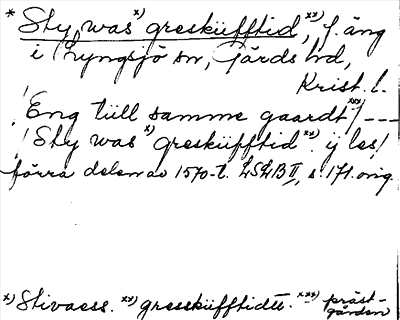 * Sty was x) greskiifftid, xx) f. äng
i Lyngsjö sn, Gärds hd,
Krist. l.
! Eng tiill samme gaardt xxx) / ---
! Sty was x) greskiifftid xx) : ij les /
förra delen av 1570-t. LSLB II, s. 171. orig.
x) Stivaess. xx) gresskiifftidtt. xxx) präst-
gården